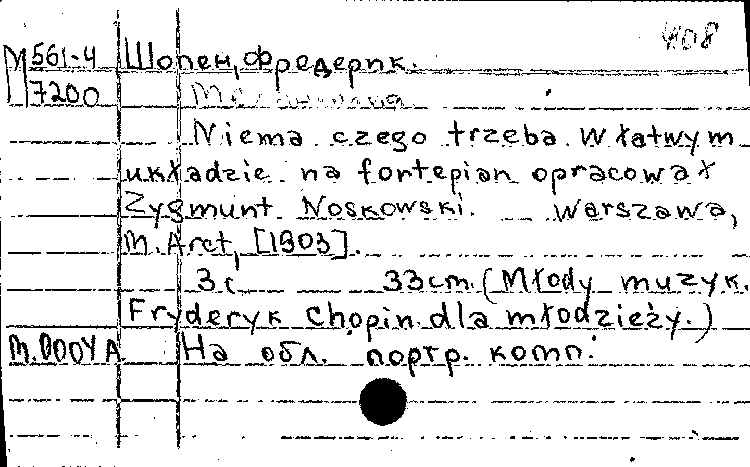 408
М 561-4 Шопен, Фредерик.
7200
Niema czego trzeba. W łatwym
układzie na fortepian opracował
Zygmunt Noskowski. Warszawa,
M. Arct, [1903].
3 с 33 cm. (Młody muzyk.
Fryderyk Chopin dla młodzieży.)
На обл. портр. комп.